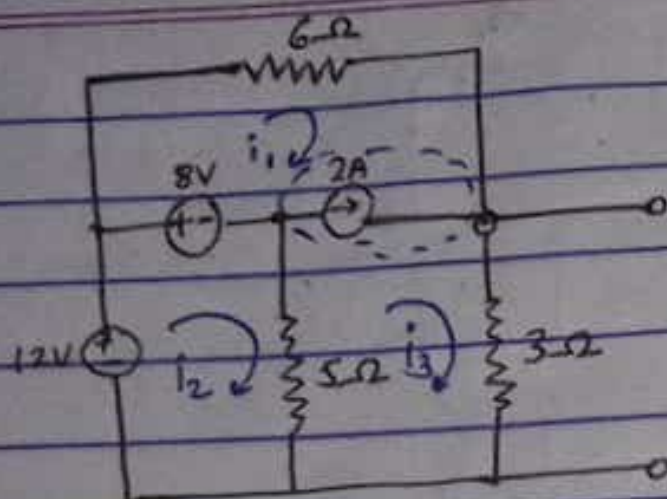 6Ω
i₁
8V
2A
+-
→
12V
+
-
i₂
5Ω
i₃
3Ω